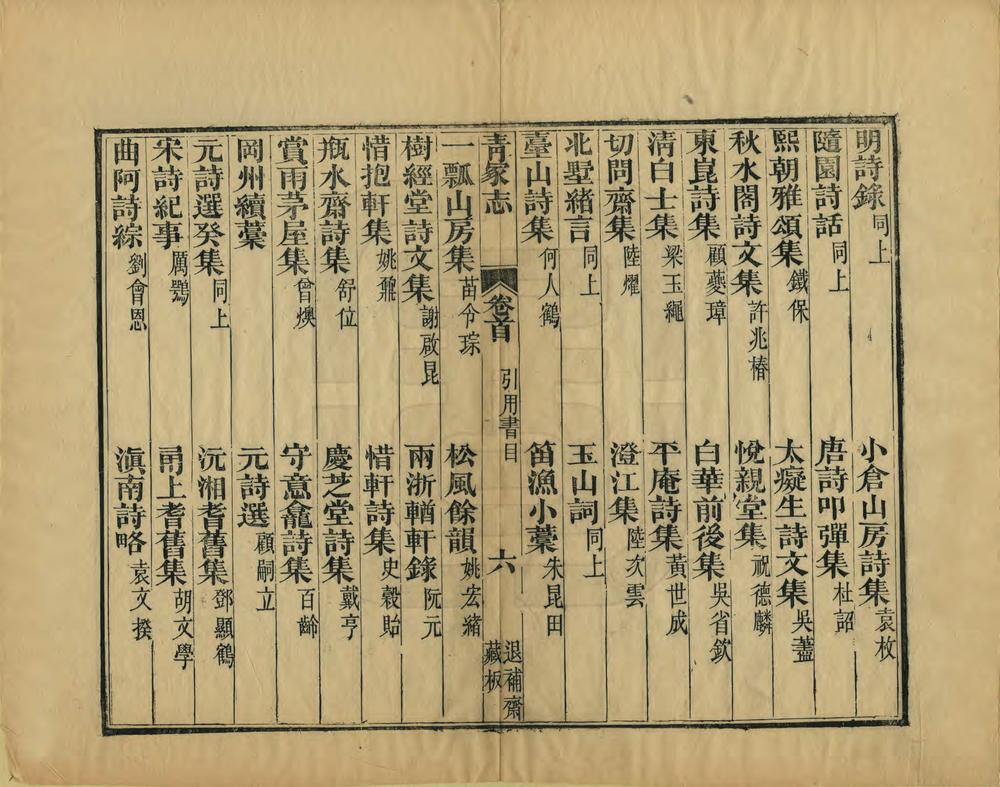 明詩錄 同上　小倉山房詩集 袁枚
隨園詩話 同上　唐詩叩彈集 杜詔
熙朝雅頌集 鐵保　太癡生詩文集 吳藎
秋水閣詩文集 許兆椿　悅親堂集 祝德麟
東崑詩集 顧夔璋　白華前後集 吳省欽
清白士集 梁玉繩　平庵詩集 黃世成
切問齋集 陸燿　澄江集 陸次雲
北墅緒言 同上　玉山詞 同上
臺山詩集 何人鶴　笛漁小藁 朱昆田
青冢志　卷首　引用書目　六　退補齋藏板
一瓢山房集 苗令琮　松風餘韻 姚宏緒
樹經堂詩文集 謝啟昆　兩浙輶軒錄 阮元
惜抱軒集 姚鼐　惜軒詩集 史穀貽
瓶水齋詩集 舒位　慶芝堂詩集 戴亨
賞雨茅屋集 曾燠　守意龕詩集 百齡
岡州續藁　元詩選 顧嗣立
元詩選癸集 同上　沅湘耆舊集 鄧顯鶴
宋詩紀事 厲鶚　甬上耆舊集 胡文學
曲阿詩綜 劉會恩　滇南詩略 袁文揆